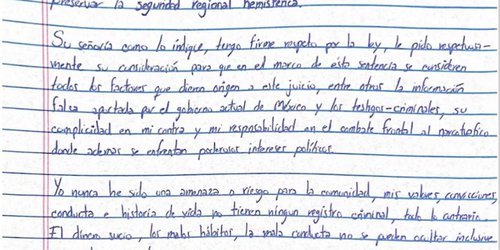 preservar la seguridad regional hemisférica.
Su señoría como lo indiqué, tengo firme respeto por la ley, le pido respetuosa-
mente su consideración para que en el marco de esta sentencia se consideren
todos los factores que dieron origen a este juicio, entre otros la información
falsa aportada por el gobierno actual de México y los testigos-criminales, su
complicidad en mi contra y mi responsabilidad en el combate frontal al narcotráfico
donde además se enfrentan poderosos intereses políticos.
Yo nunca he sido una amenaza o riesgo para la comunidad, mis valores, convicciones,
conducta e historia de vida no tienen ningun registro criminal, todo lo contrario.
El dinero sucio, los malos hábitos, la mala conducta no se pueden ocultar incluso